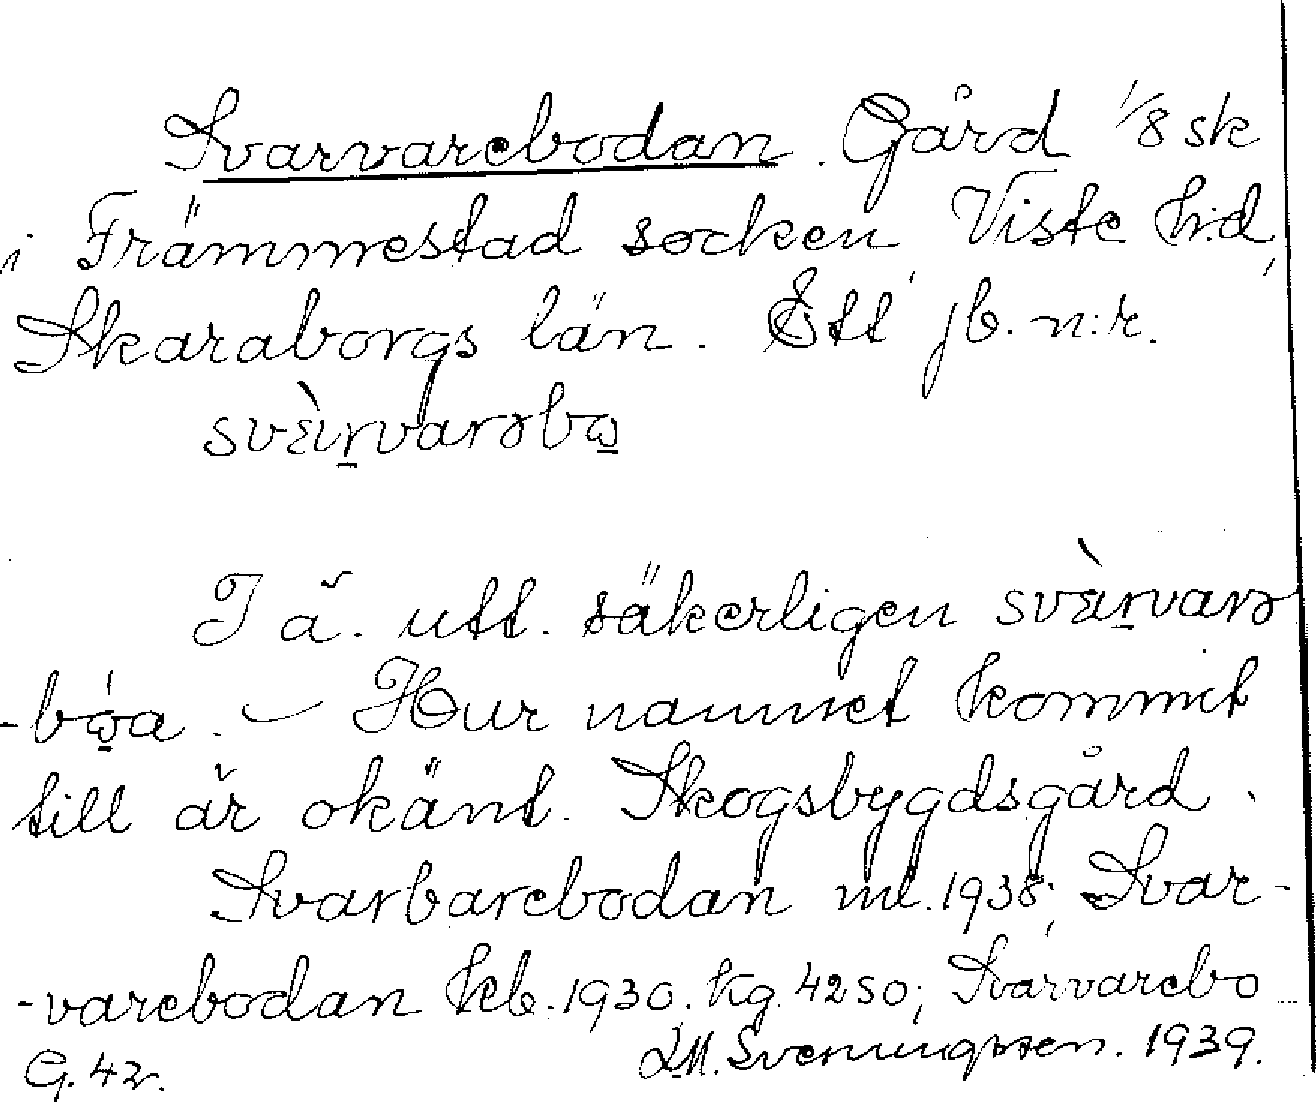 Svarvarebodan. Gård 1/8 sk
i Främmestad socken Viste h:d,
Skaraborgs län. Ett jb. n:r.
svàrvarəbo

I ä. utt. säkerligen svàrvarə
-bóa. – Hur namnet kommit
till är okänt. Skogsbygdsgård.
Svarbarebodan ml. 1938; Svar-
-varebodan kb. 1930. kg. 4250; Svarvarebo
G. 42. D.M. Sveningsson. 1939.